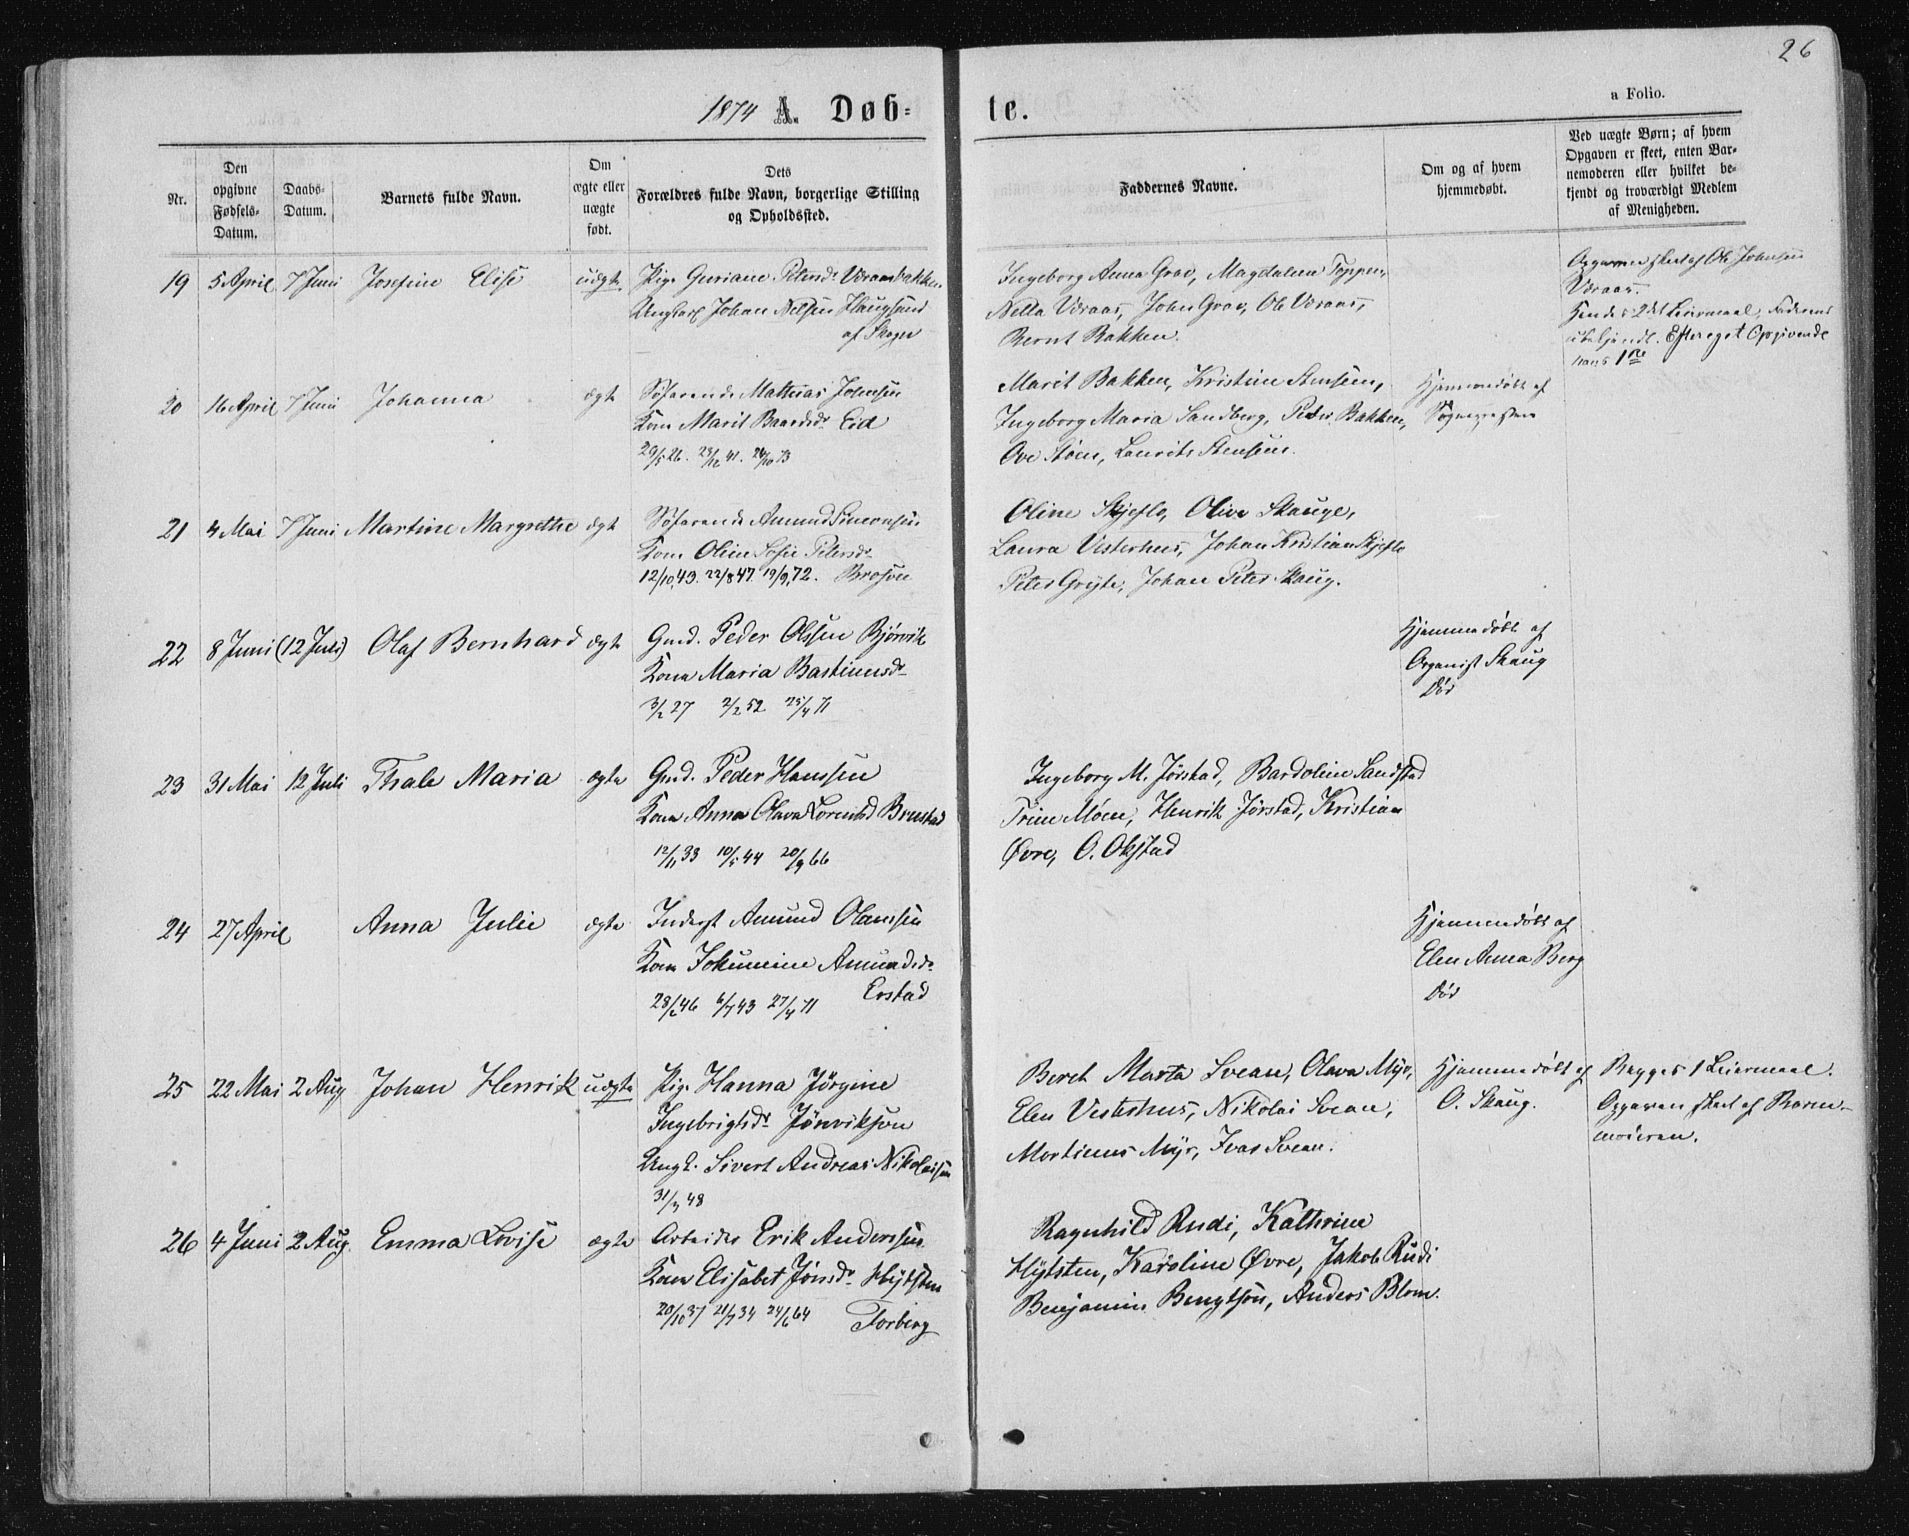 26
1874 A. Døb-
te.
a Folio.
Nr.
Den
opgivne
Fødsels-
Datum.
Daabs-
Datum.
Barnets fulde Navn.
Om
ægte eller
uægte
født.
Dets
Forældres fulde Navn, borgerlige Stilling
og Opholdssted.
Faddernes Navne.
Om og af hvem
hjemmedøbt.
Ved uægte Børn; af hvem
Opgaven er skeet, enten Bar-
nemoderen eller hvilket be-
kjendt og troværdigt Medlem
af Menigheden.
19 5 April 7 Juni Josefine Elise uægte Pige Guriane Petersdr Vøraasbakken
Ungkarl Johan Nelsen Haugsund
af Skogn
Ingeborg Anna Grav, Magdalena Toppen,
Nella Vøraas, John Grav, Ole Vøraas,
Bernt Bakken.
Opgaven skeet af Ole Johnsen
Vøraas.
Hendes 2det Leiermaal, Faderens
ubekjendt. Efter eget Opgivende
hans 1ste
20 16 April 7 Juni Johanna ægte Søfarende Mathias Johnsen
Kone Marit Baardsdr Eid
29/5 26. 23/12 41. 24/10 73
Marit Bakken, Kristine Stensen,
Ingeborg Maria Sandberg, Peter Bakken,
Ove Støen, Laurits Stensen.
Hjemmedøbt af
Sognepresten
21 4 Mai 7 Juni Martine Margrethe ægte Søfarende Amund Simonsen
Kone Oline Sofie Petersdr
12/10 49. 22/8 47. 19/9 72. Brosøen
Oline Skjeflo, Olive Skauge,
Laura Vesterhus, Johan Kristian Skjeflo
Peter Grøtte, Johan Peter Skaug.
22 8 Juni (12 Juli) Olaf Bernhard ægte Gmd. Peder Olssen Bjørvik
Kone Maria Bastiansdr
3/2 27 2/2 52 25/4 71
Hjemmedøbt af
Organist Skaug
Død
23 31 Mai 12 Juli Thale Maria ægte Gmd. Peder Hanssen
Kone Anna Olava Lorentsd Brustad
12/11 33 10/5 44 20/9 66
Ingeborg M. Jørstad, Bardoline Sandstad
Trine Moen, Henrik Jørstad, Kristian
Øvre, O. Okstad
24 27 April Anna Julie ægte Inderst Amund Olaussen
Kone Jokumine Amundsdr
28/2 46 6/7 43 27/4 71 Erstad
Hjemmedøbt af
Elen Anna Berg
Død
25 22 Mai 2 Aug Johan Henrik uægte Pige Hanna Jørgine
Ingebrigtsdr Jønviksøen
Ungk. Sivert Andreas Nikolaisen
31/3 48
Beret Marta Svean, Olava Myr,
Elen Vesterhus, Nikolai Svean,
Mortinus Myr, Ivar Svean.
Hjemmedøbt af
O. Skaug.
Begges 1 Leiermaal.
Opgaven skeet af Barne-
moderen.
26 4 Juni 2 Aug. Emma Lovise ægte Arbeider Erik Anderssen
Kone Elisabet Jønsdr Høytsten
20/10 37 21/7 34 24/6 64 Forberg
Ragnhild Rudi, Kathrine
Høytsten, Karoline Øvre, Jakob Rudi
Benjamin Bengtson, Anders Blom.